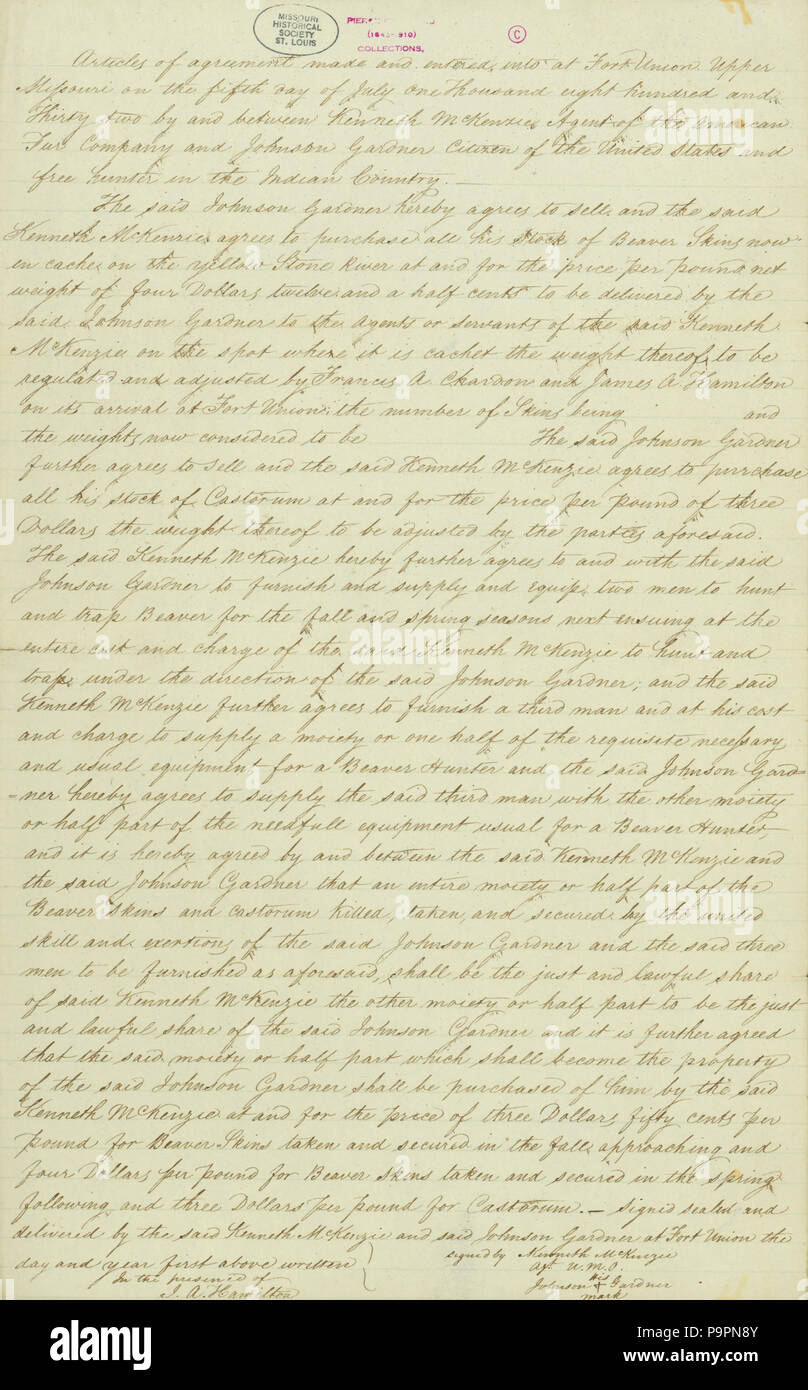 MISSOURI
HISTORICAL
SOCIETY
ST. LOUIS
COLLECTIONS,
C
Articles of agreement made and entered into at Fort Union Upper
Missouri on the fifth day of July one Thousand eight hundred and
Thirty two by and between Kenneth McKenzie Agent of the American
Fur Company and Johnson Gardner Citizen of the United States and
free hunter in the Indian Country. —
The said Johnson Gardner hereby agrees to sell and the said
Kenneth McKenzie agrees to purchase all his Stock of Beaver Skins now
en cache on the yellow Stone River at and for the price per pound net
weight of four Dollars twelve and a half cents to be delivered by the
said Johnson Gardner to the agents or servants of the said Kenneth
McKenzie on the spot where it is cachet the weight thereof to be
regulated and adjusted by Francis A. Chardon and James A Hamilton
on its arrival at Fort Union, the number of Skins being and
the weight now considered to be The said Johnson Gardner
further agrees to sell and the said Kenneth McKenzie agrees to purchase
all his stock of Castorum at and for the price per pound of three
Dollars the weight thereof to be adjusted by the parties aforesaid.
The said Kenneth McKenzie hereby further agrees to and with the said
Johnson Gardner to furnish and supply and equip two men to hunt
and trap Beaver for the fall and spring seasons next ensuing at the
entire cost and charge of the said Kenneth McKenzie to hunt and
trap under the direction of the said Johnson Gardner; and the said
Kenneth McKenzie further agrees to furnish a third man and at his cost
and charge to supply a moiety or one half of the requisite necessary
and usual equipment for a Beaver Hunter and the said Johnson Gard=
=ner hereby agrees to supply the said third man with the other moiety
or half part of the needfull equipment usual for a Beaver Hunter,
and it is hereby agreed by and between the said Kenneth McKenzie and
the said Johnson Gardner that an entire moiety or half part of the
Beaver skins and castorum killed, taken, and secured by the united
skill and exertions of the said Johnson Gardner and the said three
men to be furnished as aforesaid, shall be the just and lawful share
of said Kenneth McKenzie the other moiety or half part to be the just
and lawful share of the said Johnson Gardner and it is further agreed
that the said moiety or half part which shall become the property
of the said Johnson Gardner shall be purchased of him by the said
Kenneth McKenzie at and for the price of three Dollars fifty cents per
pound for Beaver Skins taken and secured in the fall approaching and
four Dollars per pound for Beaver skins taken and secured in the spring
following and three Dollars per pound for Castorum. — Signed sealed and
delivered by the said Kenneth McKenzie and said Johnson Gardner at Fort Union the
day and year first above written
signed by Kenneth McKenzie
Agt U.M.O.
In the presence of
J. A. Hamilton
his
Johnson + Gardner
mark
alamy
Image ID: P9PN8Y
www.alamy.com